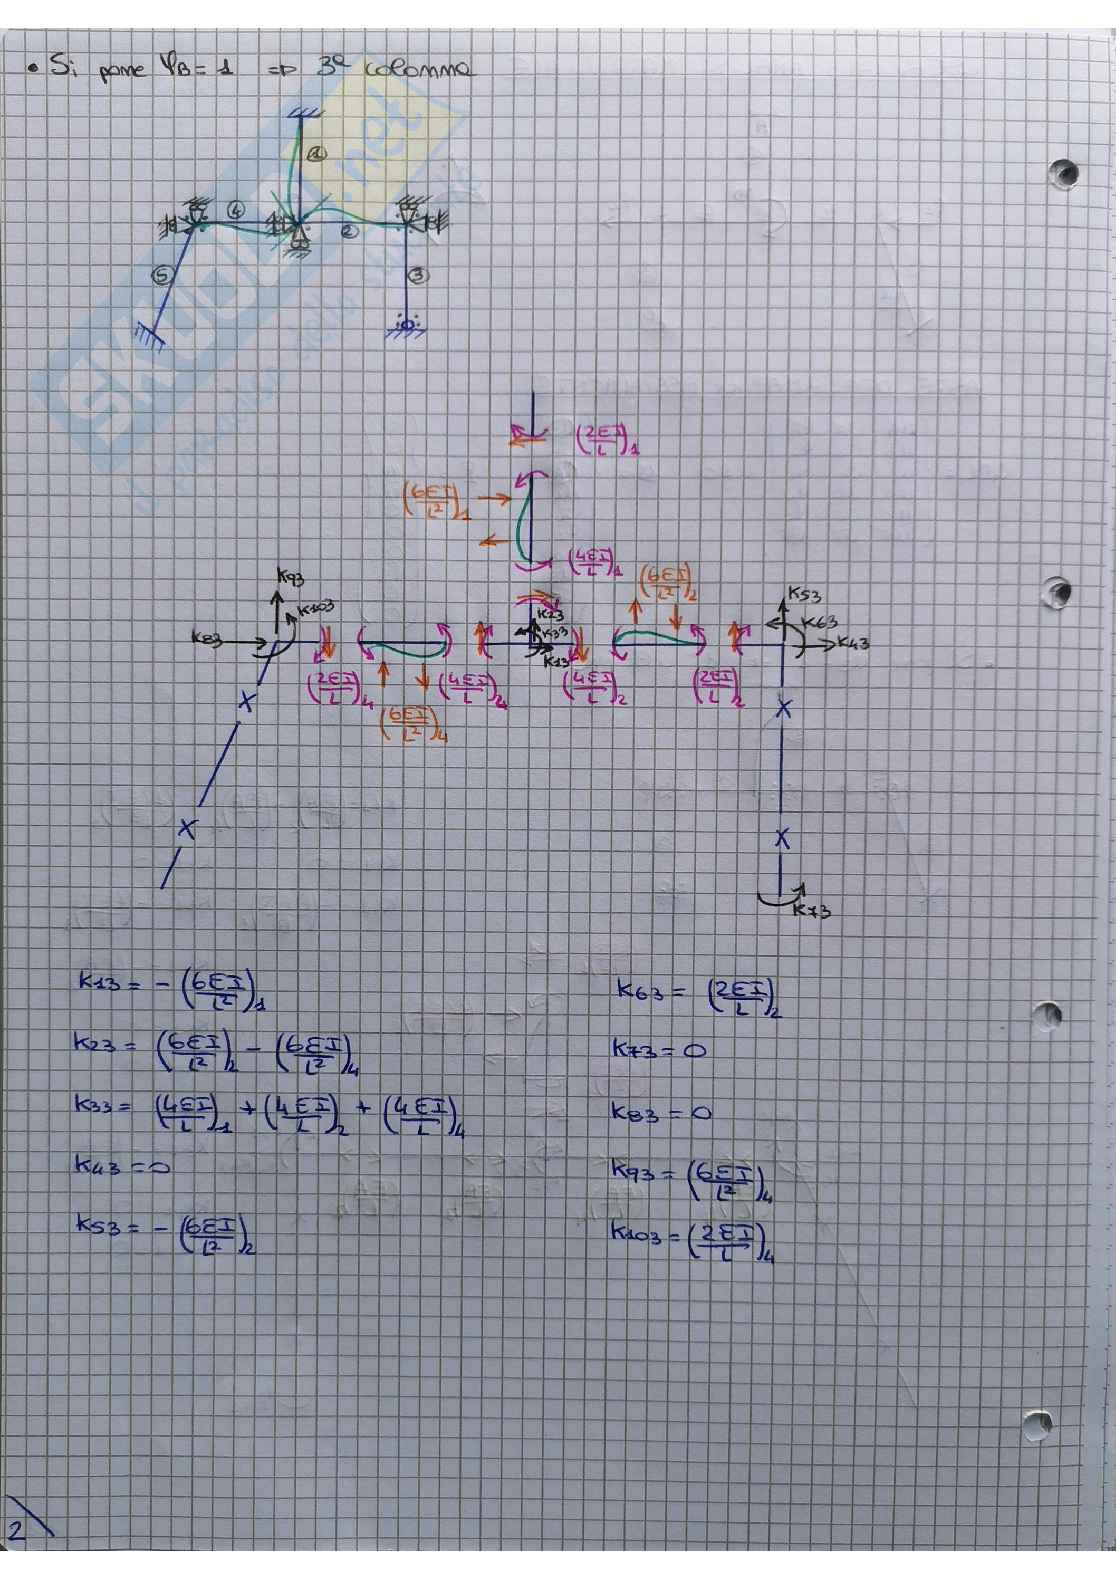 • Si pone φB = 1 ⇒ 3ª colonna
1
4
2
5
3
(2EI/L)1
(6EI/L²)1
(4EI/L)1
(6EI/L²)2
K93
K103
K83
K23
K33
K13
K53
K63
K43
(2EI/L)4
(4EI/L)4
(4EI/L)2
(2EI/L)2
(6EI/L²)4
X
X
X
X
K73
K13 = - (6EI/L²)1
K23 = (6EI/L²)2 - (6EI/L²)4
K33 = (4EI/L)1 + (4EI/L)2 + (4EI/L)4
K43 = 0
K53 = - (6EI/L²)2
K63 = (2EI/L)2
K73 = 0
K83 = 0
K93 = (6EI/L²)4
K103 = (2EI/L)4
2
SKUOLA.net